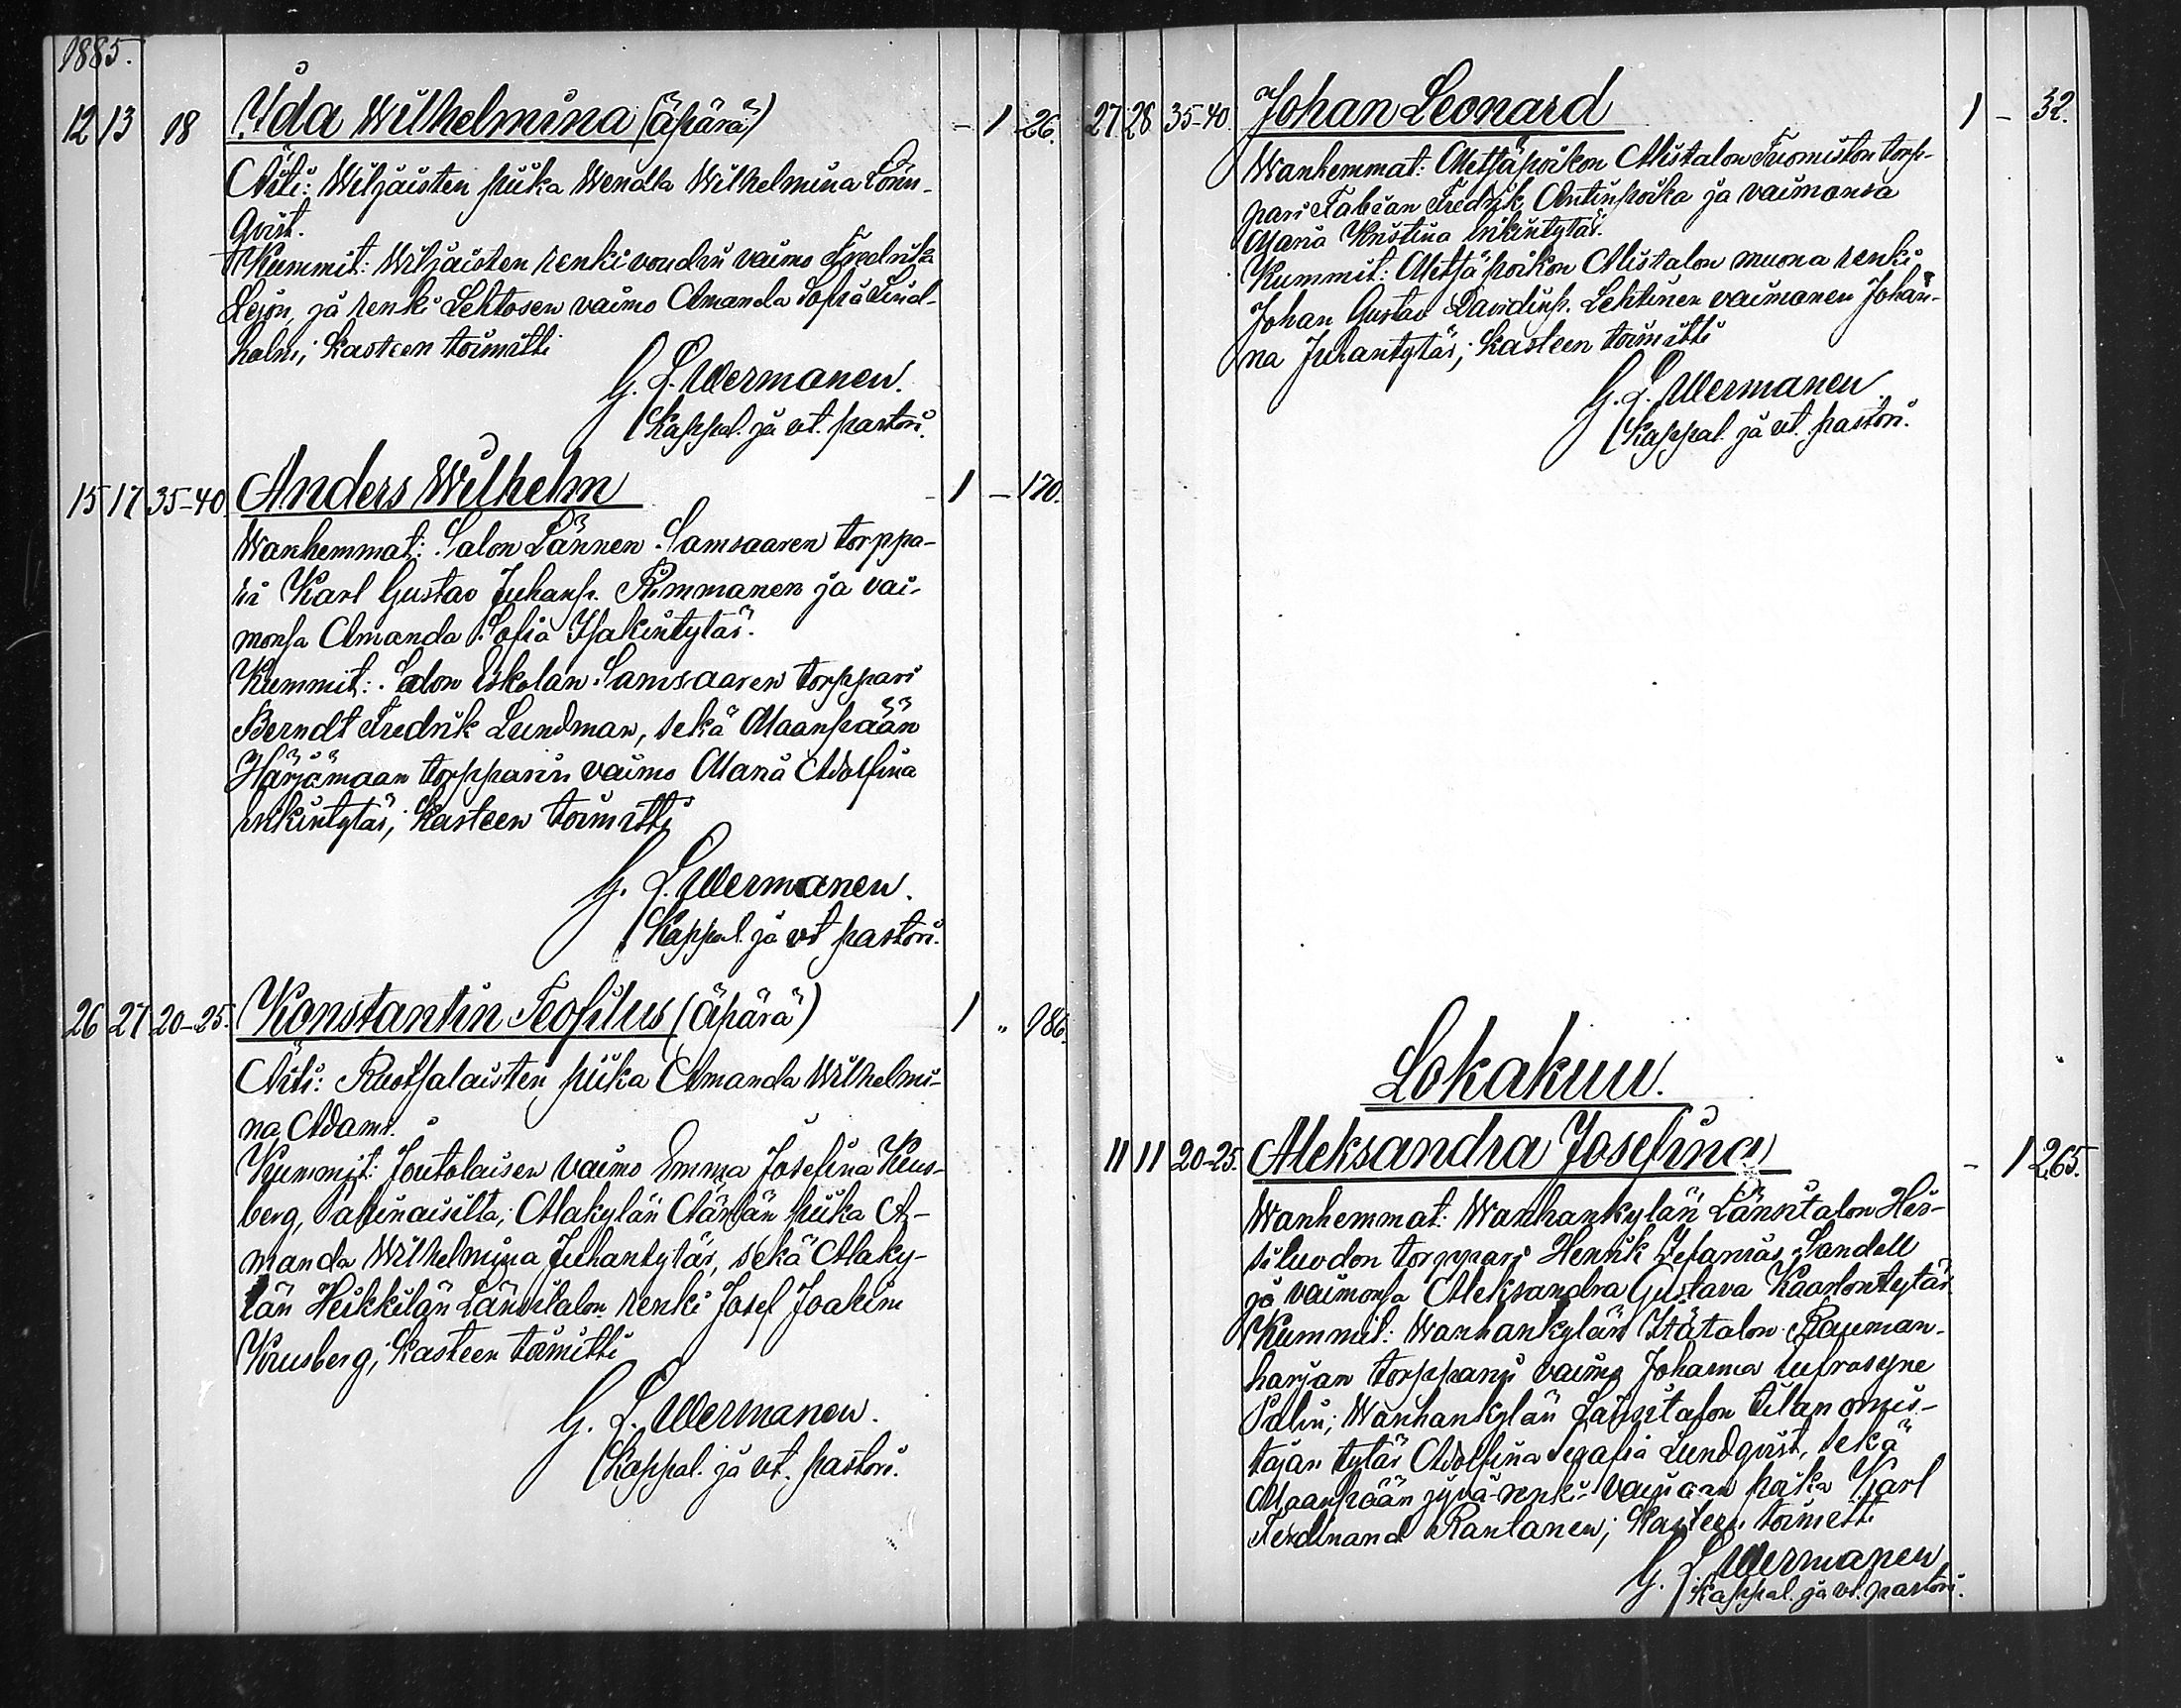 1885.
12 13 18 Ida Wilhelmina (äpärä) - 1 26.
Äiti: Wiljaisten piika Wendla Wilhelmina Lönn-
qvist.
Kummit: Wiljaisten renkivoudin vaimo Fredrika
Lejon, ja renki Lehtosen vaimo Amanda Sofia Lind-
holm; Kasteen toimitti
G. L. Wermanen.
Kappal. ja vt. pastori.
15 17 35-40. Anders Wilhelm 1 - 170.
Wanhemmat: Salon Lännen Samsaaren torppa-
ri Karl Gustav Juhanp. Rimmanen ja vai-
monsa Amanda Sofia Isakintytär.
Kummit: Salon Eskolan Samsaaren torppari
Berndt Fredrik Lundman, sekä Maanpään
Härjämaan torpparin vaimo Maria Adolfina
Erikintytär; Kasteen toimitti
G. L. Wermanen.
Kappal. ja vt pastori.
26 27 20-25. Konstantin Teofilus (äpärä) 1 " 186.
Äiti: Ruotsalaisten piika Amanda Wilhelmi-
na Adams.
Kummit: Joutolaisen vaimo Emma Josefina Krus-
berg, Pahinaisilta; Alakylän Äärilän piika A-
manda Wilhelmina Juhantytär, sekä Alaky-
län Heikkilän Länsitalon renki Josef Joakim
Krusberg; Kasteen toimitti
G. L. Wermanen.
Kappal. ja vt. pastori.
27 28 35-40. Johan Leonard 1 - 32.
Wanhemmat: Metsäpoikon Alistalon Tuomiston torp-
pari Fabian Fredrik Antinpoika ja vaimonsa
Maria Kristina Erikintytär.
Kummit: Metsäpoikon Alistalon muona renki
Johan Gustav Davidinp. Lehtinen vaimonen Johan-
na Juhantytär; Kasteen toimitti
G. L. Wermanen
Kappal. ja vt. pastori.
Lokakuu.
11 11 20-25. Aleksandra Josefina - 1 265.
Wanhemmat: Wanhankylän Länsitalon His-
siluodon torppari Henrik Sefanias Sandell
ja vaimonsa Aleksandra Gustava Kaarlontytär.
Kummit: Wanhankylän Itätalon Rauman-
harjan torpparin vaimo Johanna Eufrosyne
Palin; Wanhankylän Länsitalon tilan omis-
tajan tytär Adolfina Serafia Lundqvist, sekä
Maanpään jyvä-renki-vainaan poika Karl
Ferdinand Rantanen; Kasteen toimitti
G. L. Wermanen
Kappal. ja vt. pastori.